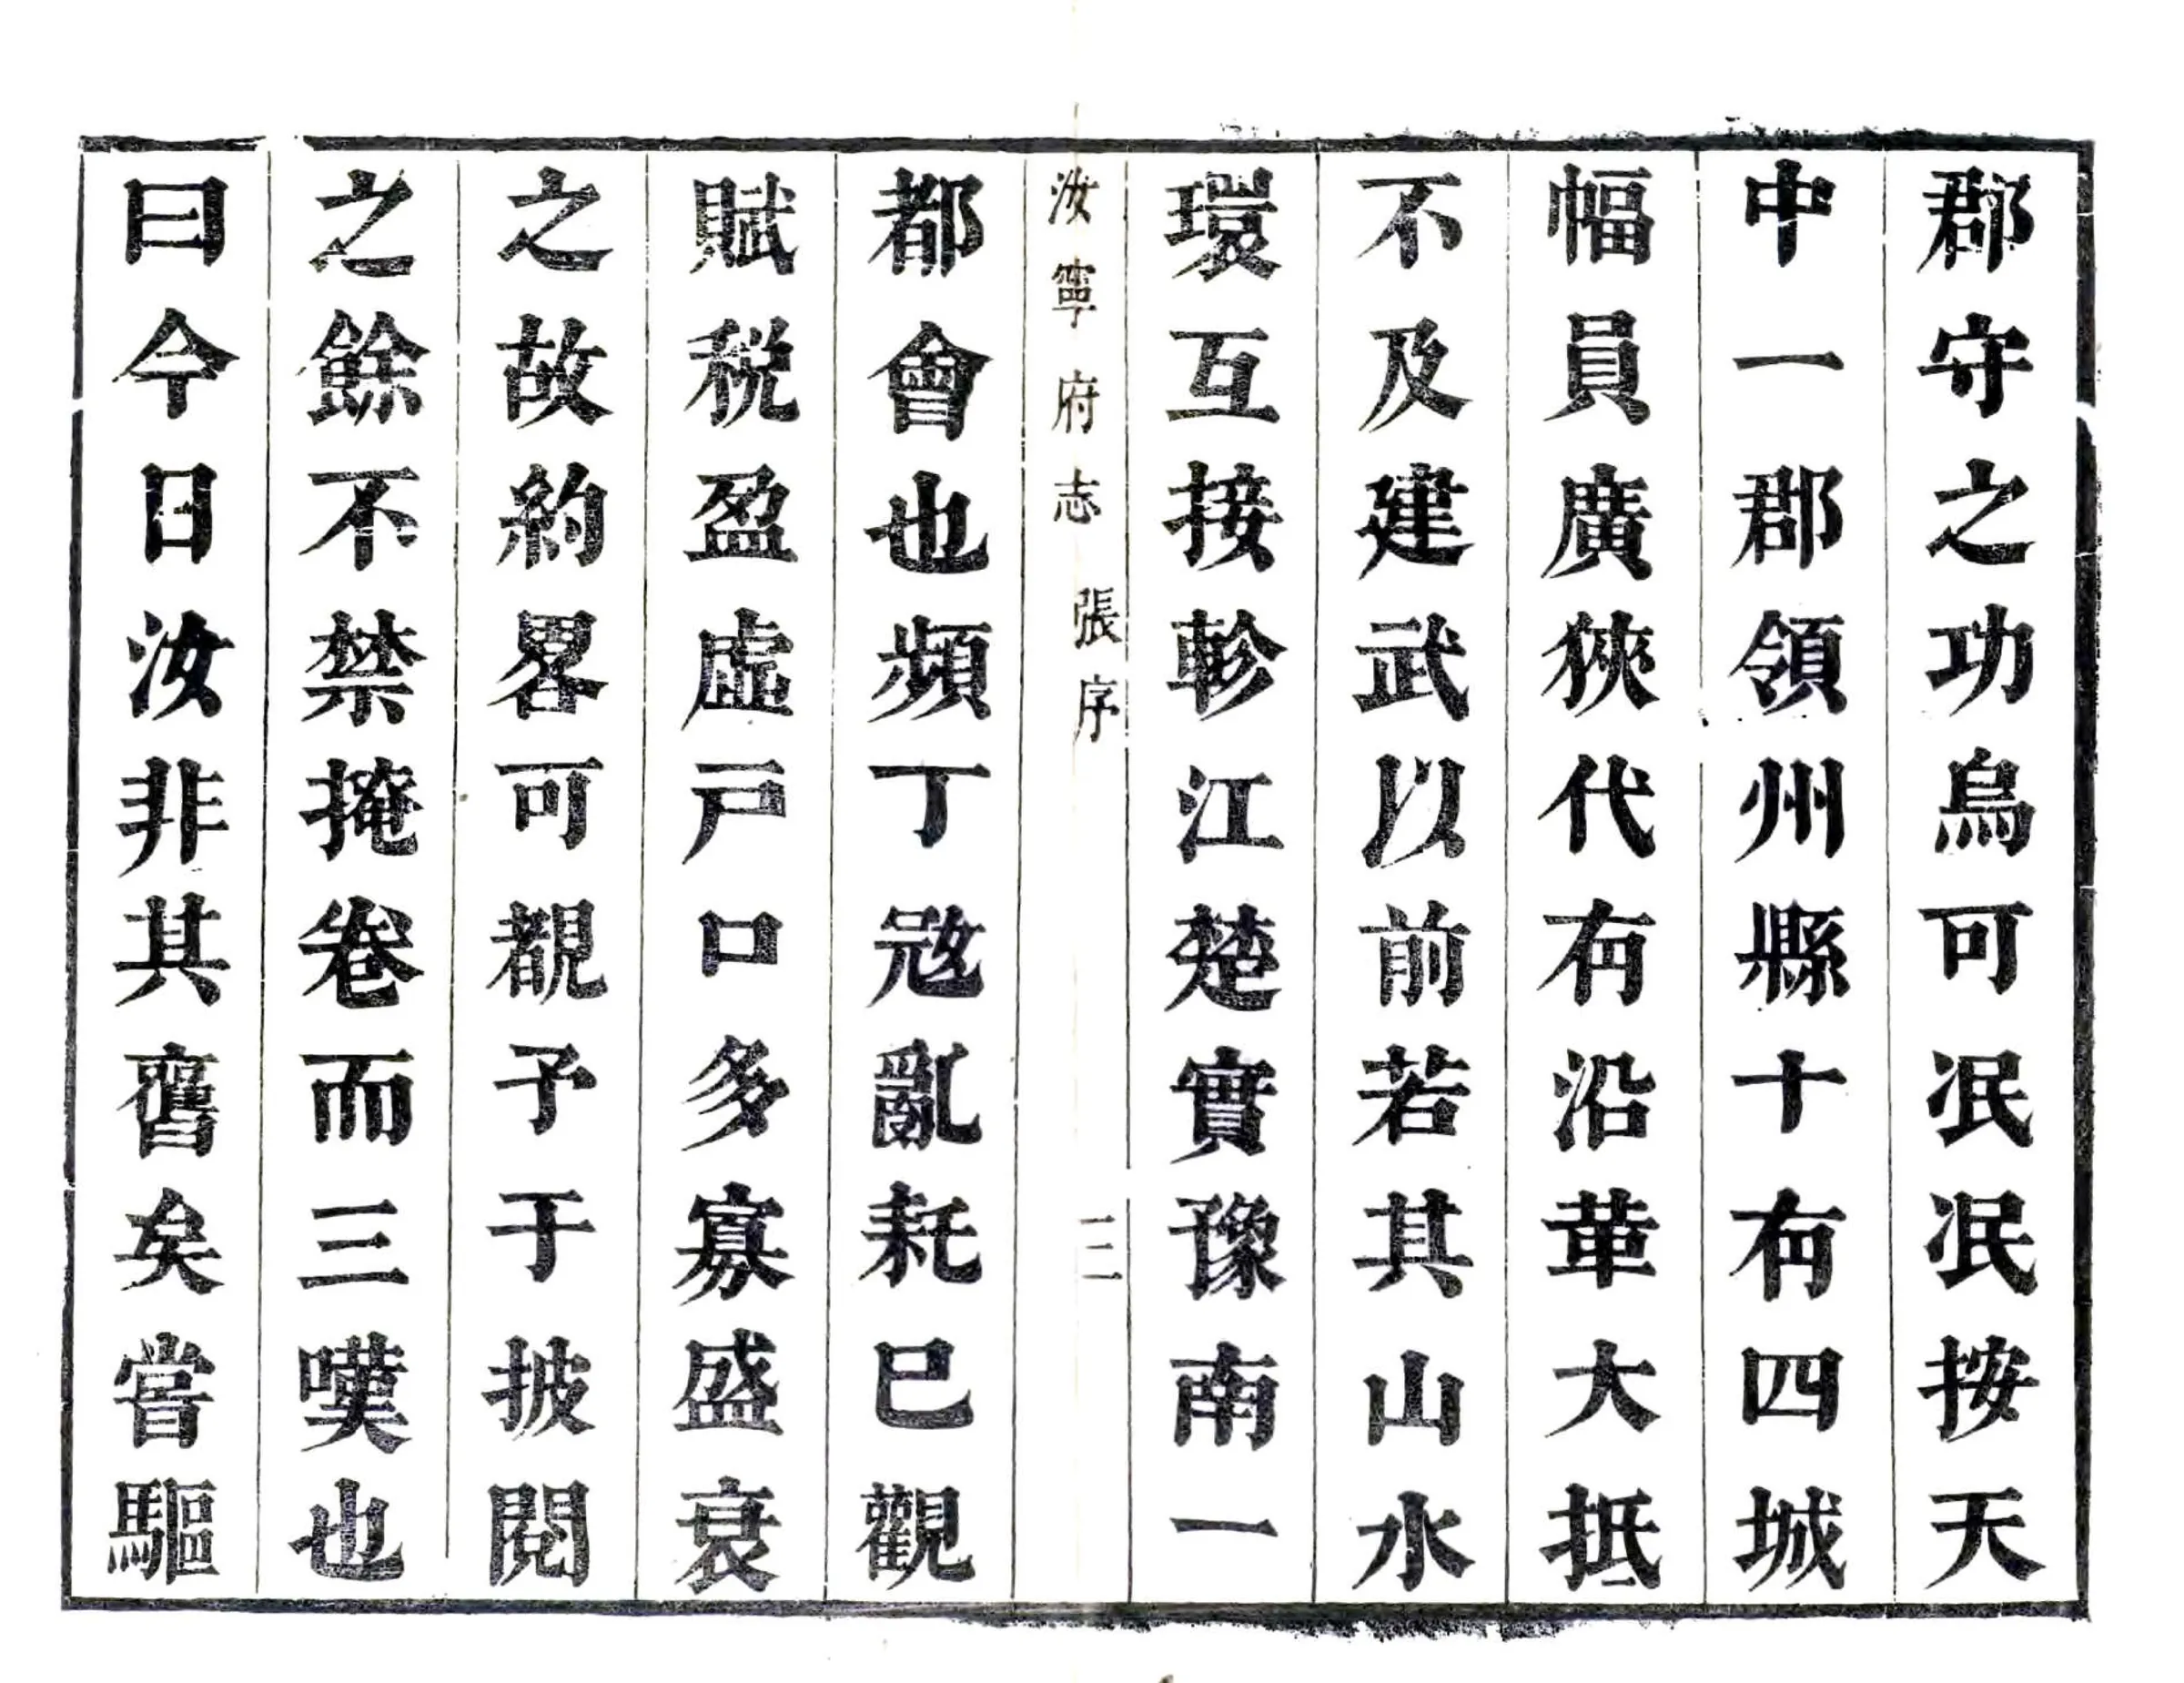 郡守之功烏可冺冺按天
中一郡領州縣十有四城
幅員廣狹代有沿革大抵
不及建武以前若其山水
環互接軫江楚實豫南一
汝寧府志 張序 二
都會也頻丁宼亂耗巳觀
賦稅盈虛戸口多寡盛衰
之故約畧可覩予于披閱
之餘不禁掩卷而三嘆也
曰今日汝非其舊矣嘗驅